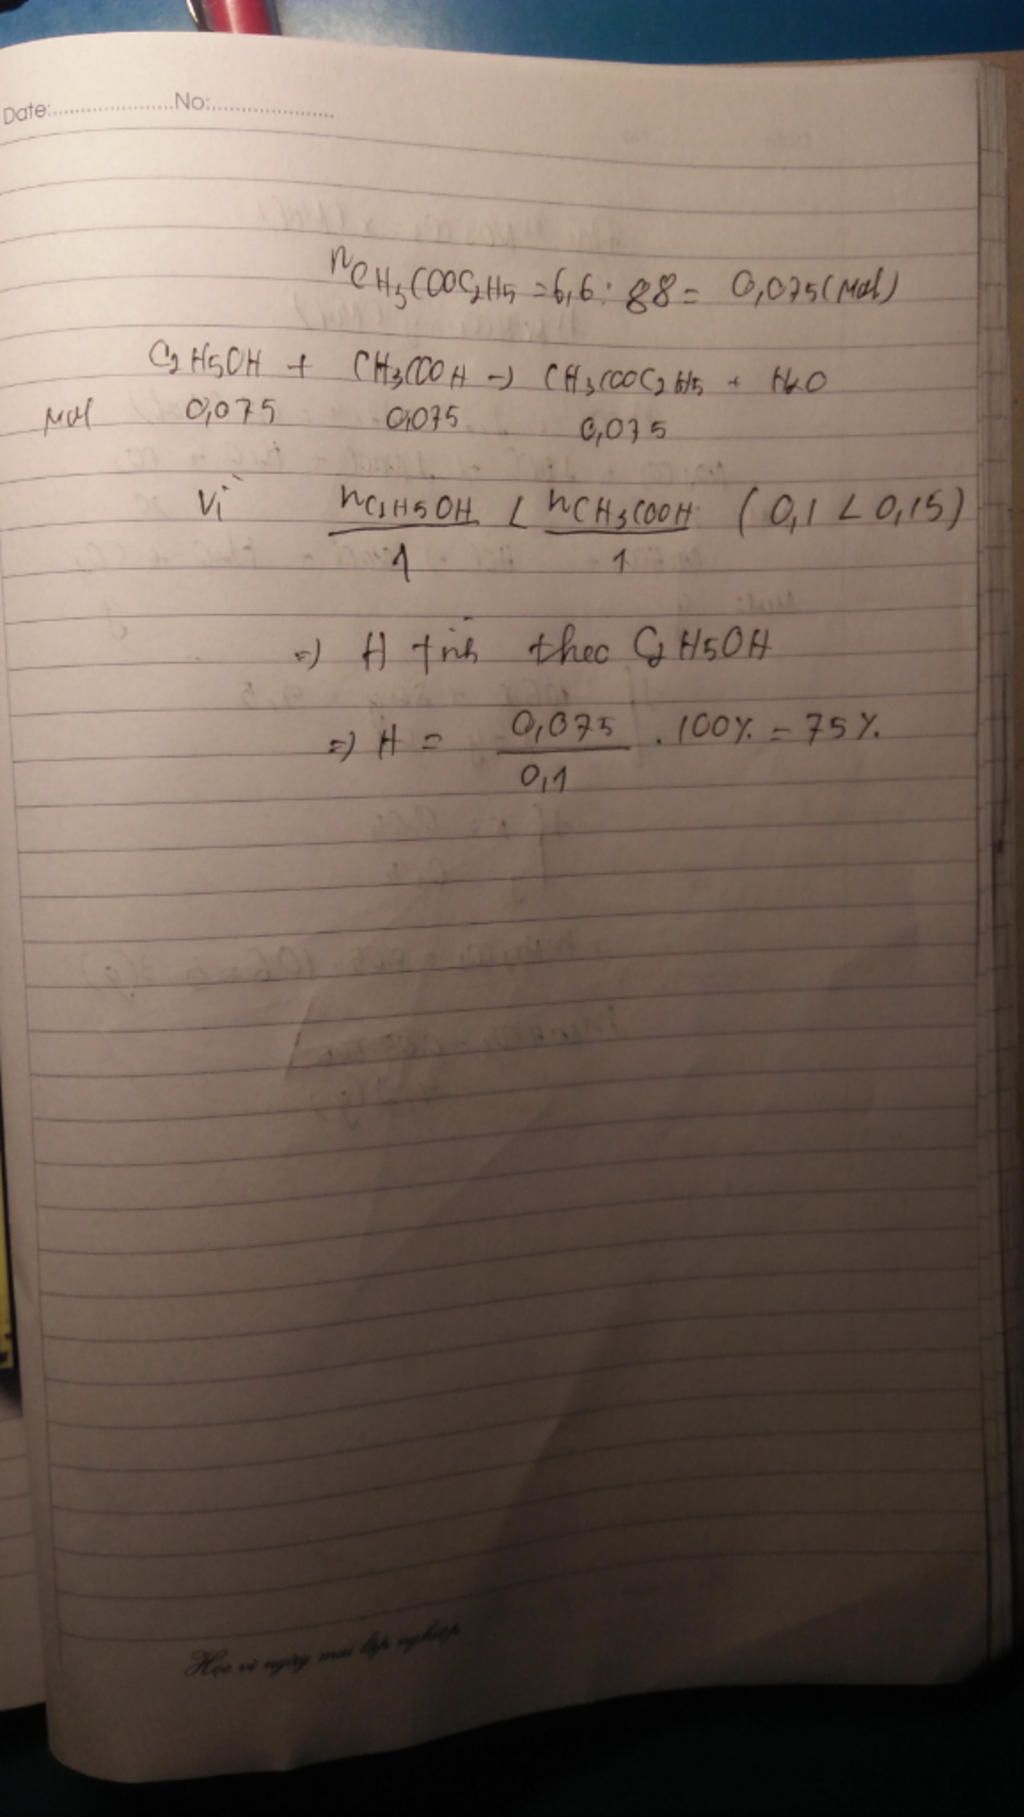 Date:.....................No:.....................
nCH3COOC2H5 = 6,6 : 88 = 0,075 (mol)
C2H5OH + CH3COOH -> CH3COOC2H5 + H2O
mol 0,075 0,075 0,075
Vì nC2H5OH/1 < nCH3COOH/1 (0,1 < 0,15)
=) H tính theo C2H5OH
=) H = 0,075/0,1 . 100% = 75%
Học vì ngày mai lập nghiệp